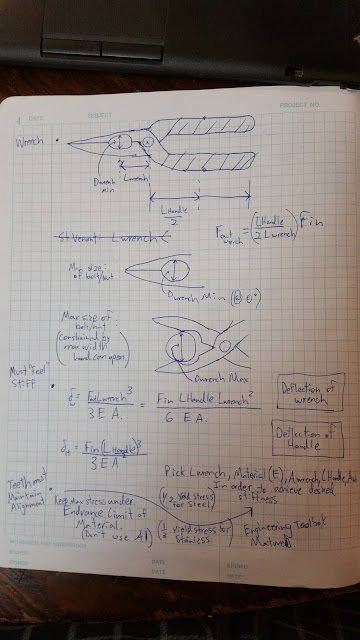 4 DATE SUBJECT PROJECT NO.
Wrench
Dwrench
min
Lwrench
LHandle
2
Fout wrench = (LHandle / 2 Lwrench) Fin
St Venant: Lwrench <
Min size
of bolt/nut
Dwrench Min @ 0°
Max size of
bolt/nut:
(constrained by
max width
hand can open)
Dwrench Max
Must "feel"
Stiff
δ = Fout Lwrench³ / 3 E A = Fin LHandle Lwrench² / 6 E A
Deflection of
wrench
δH = Fin (LHandle)³ / 3 E A
Deflection of
Handle
Pick Lwrench, Material (E), Awrench, LHandle,
In order to achieve desired
stiffness
Teeth must
Maintain
Alignment
Keep Max stress under
Endurance Limit of
Material.
(Don't use Al)
(1/2 yield stress
for steel)
yield stress for
Stainless.
Engineering Toolbox
SIGNED
DATE
SIGNED
DATE